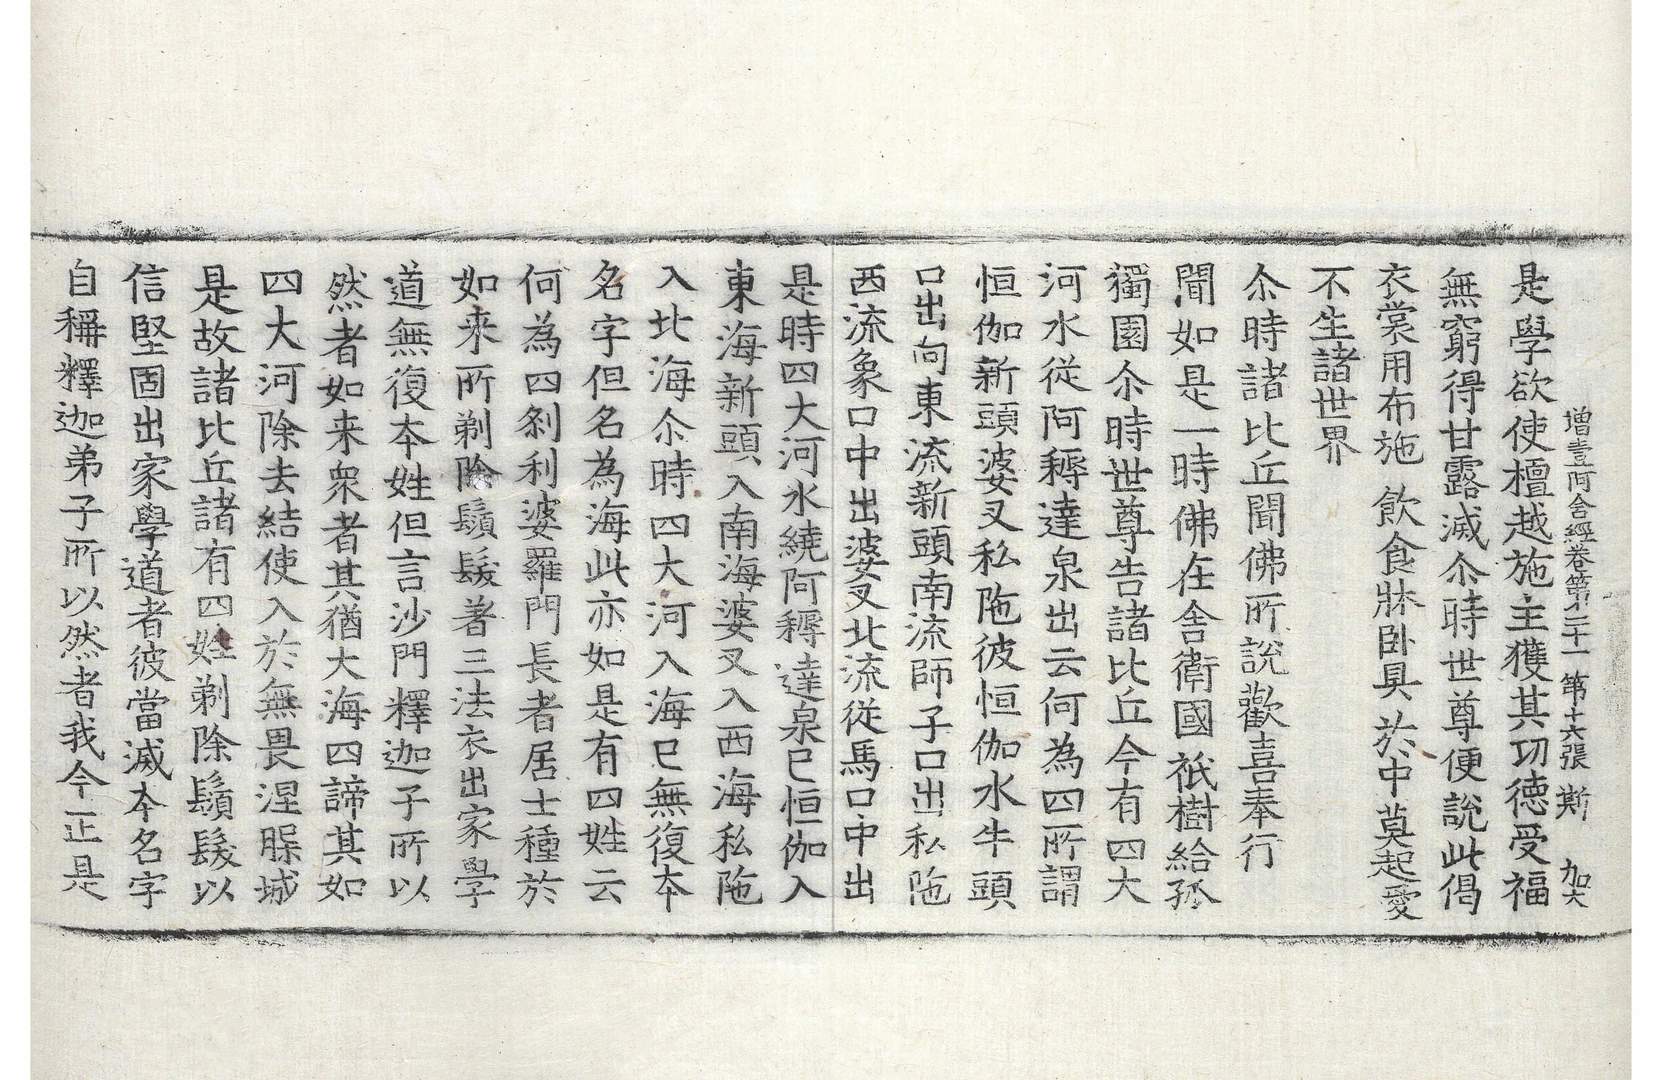 增壹阿含經卷第二十一 第十六張 斯 加六
是學欲使檀越施主獲其功德受福
無窮得甘露滅尒時世尊便說此偈
衣裳用布施 飲食牀卧具 於中莫起愛
不生諸世界
尒時諸比丘聞佛所說歡喜奉行
聞如是一時佛在舍衛國祇樹給孤
獨園尒時世尊告諸比丘今有四大
河水從阿耨達泉出云何為四所謂
恒伽新頭婆叉私陁彼恒伽水牛頭
口出向東流新頭南流師子口出私陁
西流象口中出婆叉北流從馬口中出
是時四大河水繞阿耨達泉已恒伽入
東海新頭入南海婆叉入西海私陁
入北海尒時四大河入海已無復夲
名字但名為海此亦如是有四姓云
何為四刹利婆羅門長者居士種於
如来所剃除鬚髮著三法衣出家學
道無復夲姓但言沙門釋迦子所以
然者如来衆者其猶大海四諦其如
四大河除去結使入於無畏涅槃城
是故諸比丘諸有四姓剃除鬚髮以
信堅固出家學道者彼當滅夲名字
自稱釋迦弟子所以然者我今正是